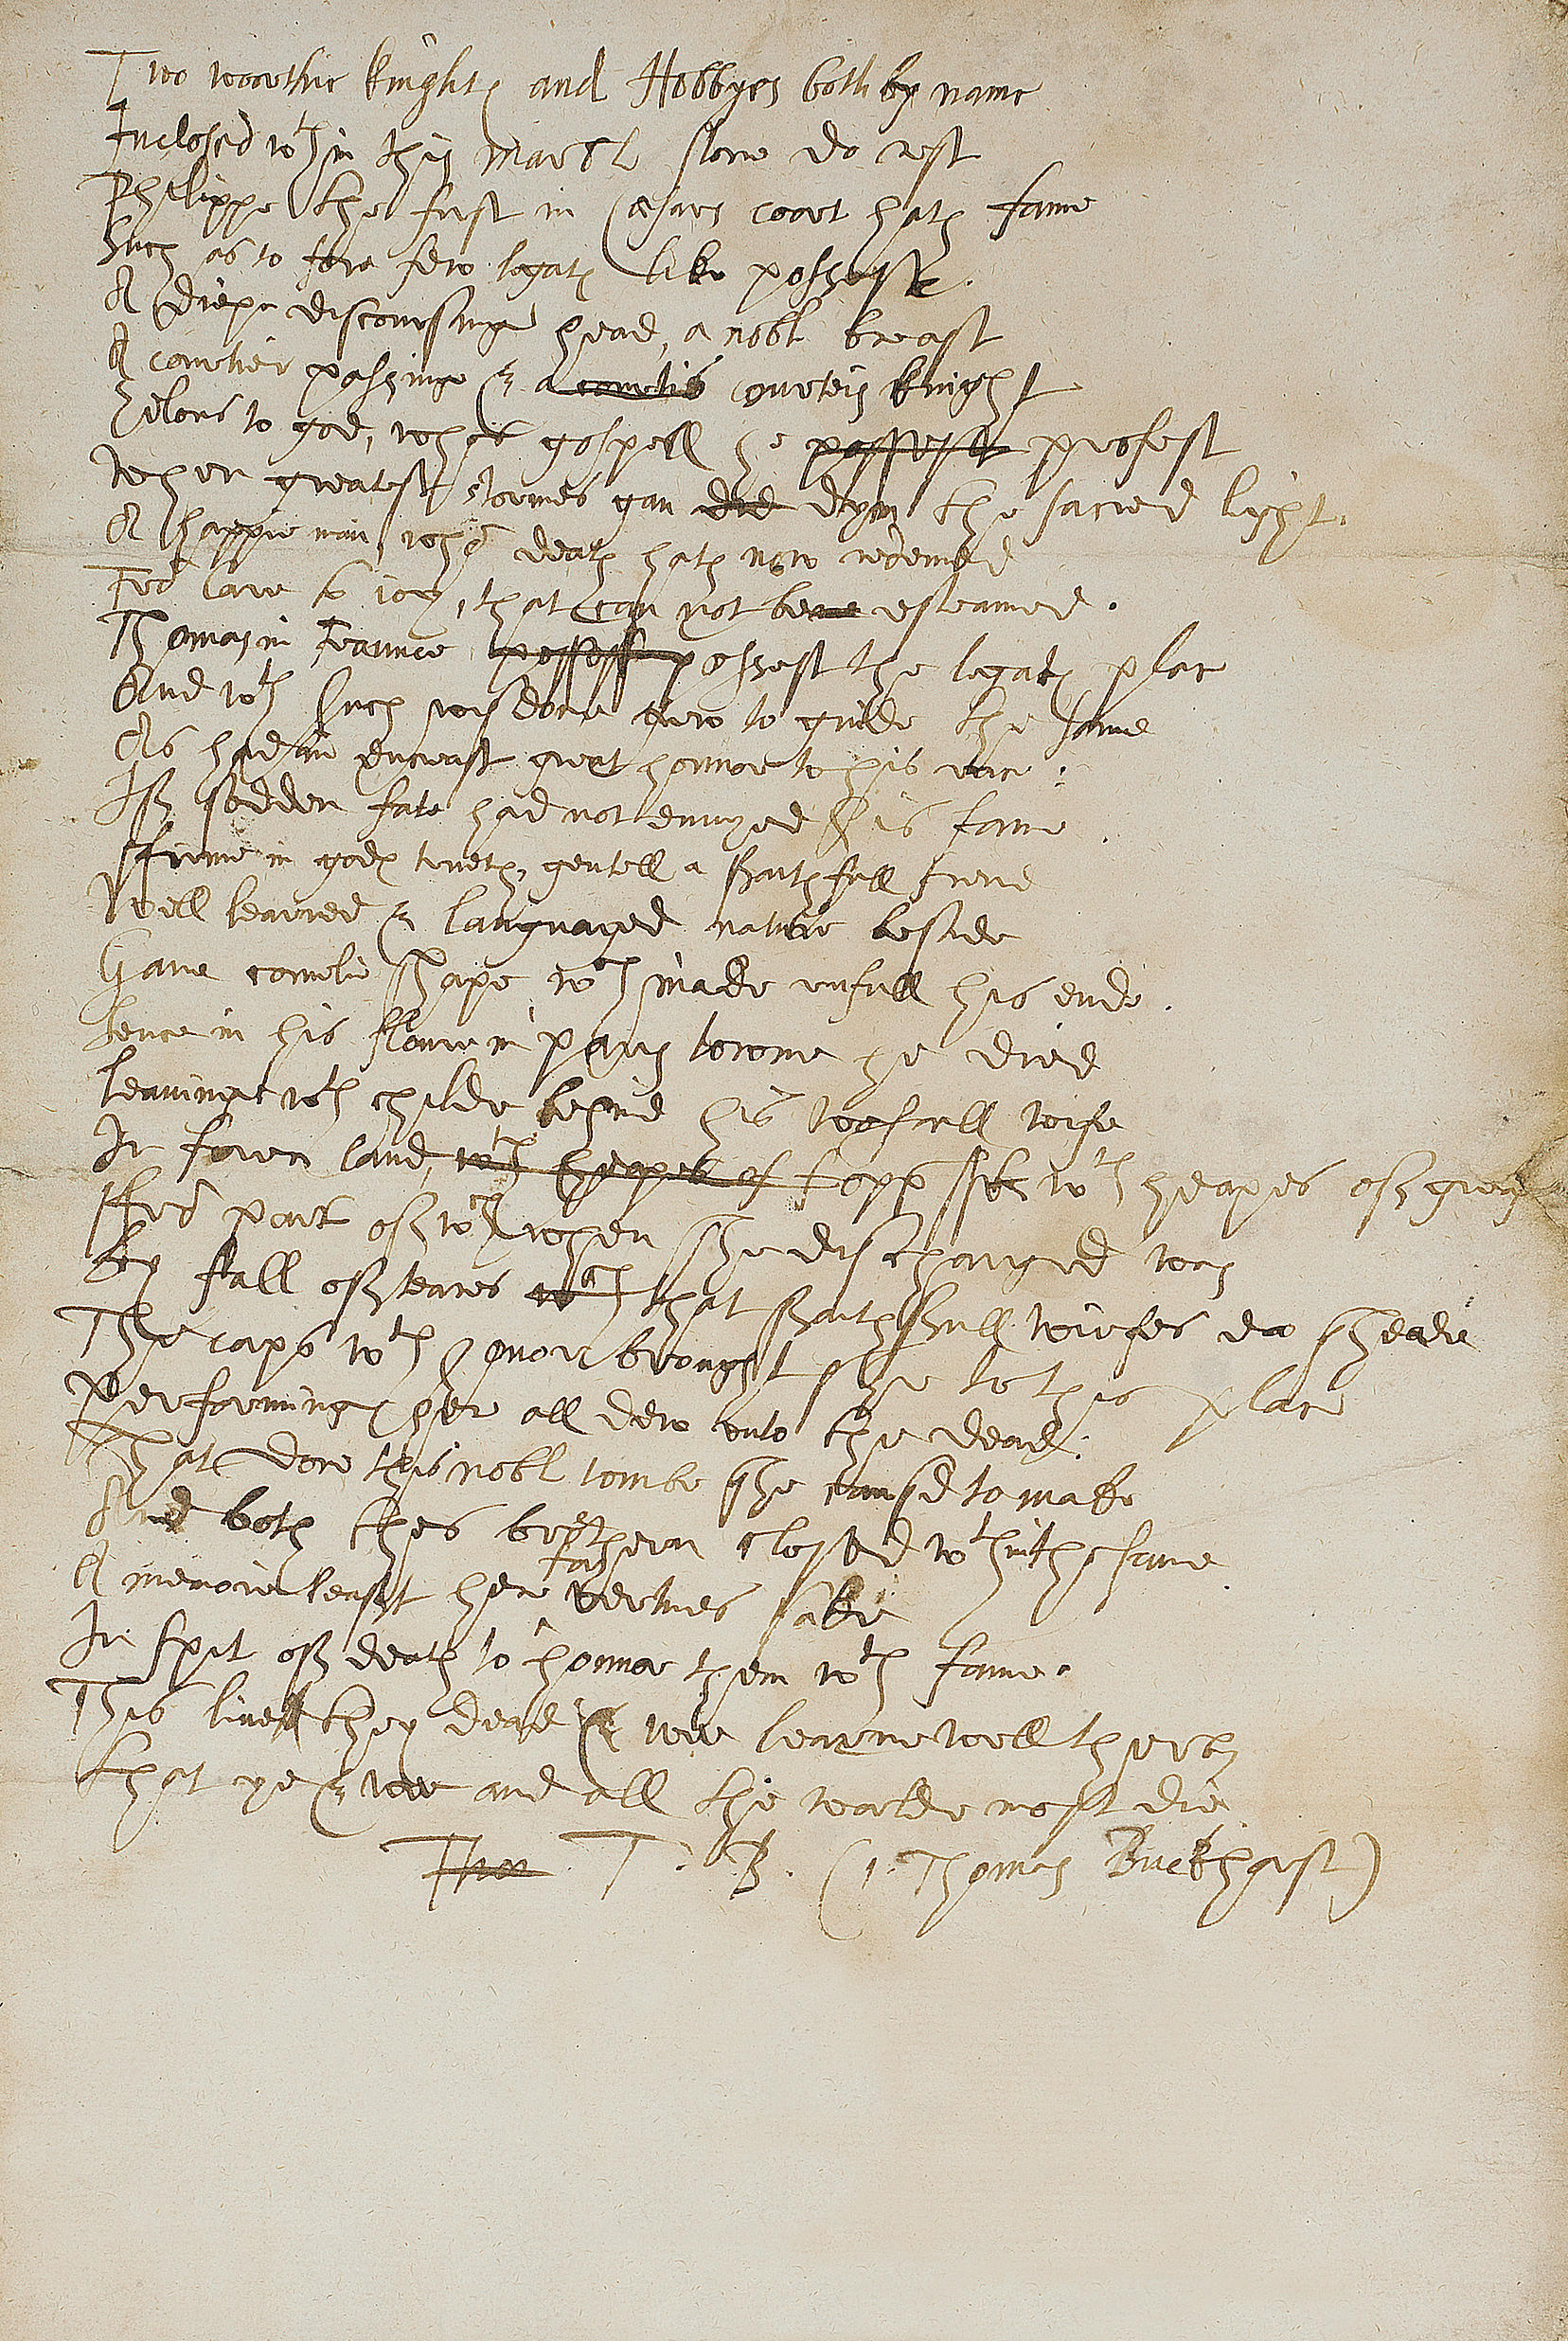 Two woorthie knightes and Hobbyes both by name
Inclosed wth in this marbl stone do rest
Philippe the first in Cæsars court hath fame
Such as to fore few legates like possest.
A diepe discoursinge head, a nobl breast
A courtier passinge & a courtis courteis knight
Zelous to god, whos gospell he possest profest
When greatest stormes gan did dym the sacred light.
A happie man, whõ death hath now redemed
Frõ care to ioy, that can not bene esteamed.
Thomas in Fraunce possest possest the legates place
And wth such wisdome grew to guide the same
As had in encreast great honnor to his race:
If sodden fate had not enuyed his fame.
Firme in godes trueth, gentell a faithfull frend
Well learned & languaged nature beside
Gaue comelie shape wch made rufull his ende.
Sence in his floure in paris towne he died
leauinge wth childe behind his woofull wife
In foren land, wth heapes of opprest wth heapes of grief
Frõ part of wch when she discharged was
by fall of teares wch that faithfull wiefes do sheade
The corps wth honour brought she to this place
Performing her all dew vnto the dead.
That done this nobl tombe she causd to make
And both thes brethern closed wth in the same
A memorie least her for vertues sake
In spit of death to honnor them wth fame.
This live they dead & we learne well therby
that ye & we and all the worlde most die
Tho T. B. (1. Thomas Buckhurst)